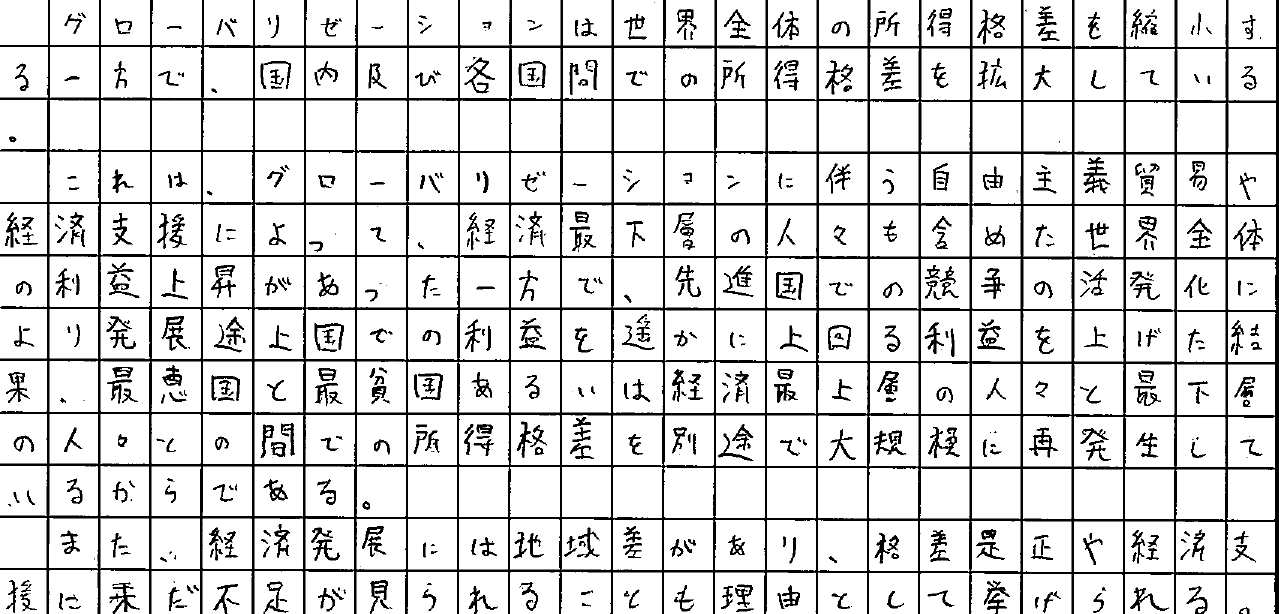 グローバリゼーションは世界全体の所得格差を縮小す
る一方で、国内及び各国間での所得格差を拡大している
。
これは、グローバリゼーションに伴う自由主義貿易や
経済支援によって、経済最下層の人々も含めた世界全体
の利益上昇があった一方で、先進国での競争の活発化に
より発展途上国での利益を遥かに上回る利益を上げた結
果、最恵国と最貧国あるいは経済最上層の人々と最下層
の人々との間での所得格差を別途で大規模に再発生して
いるからである。
また、経済発展には地域差があり、格差是正や経済支
援に未だ不足が見られることも理由として挙げられる。